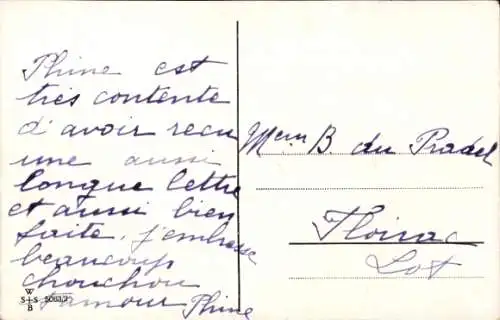 Phine est
très contente
d'avoir reçu
une aussi
longue lettre
et aussi bien
faite, j'embrasse
beaucoup
chouchou
d'amour Phine
Mem B du Pradel
Floirac
Lot
W
S S
B
5063/2